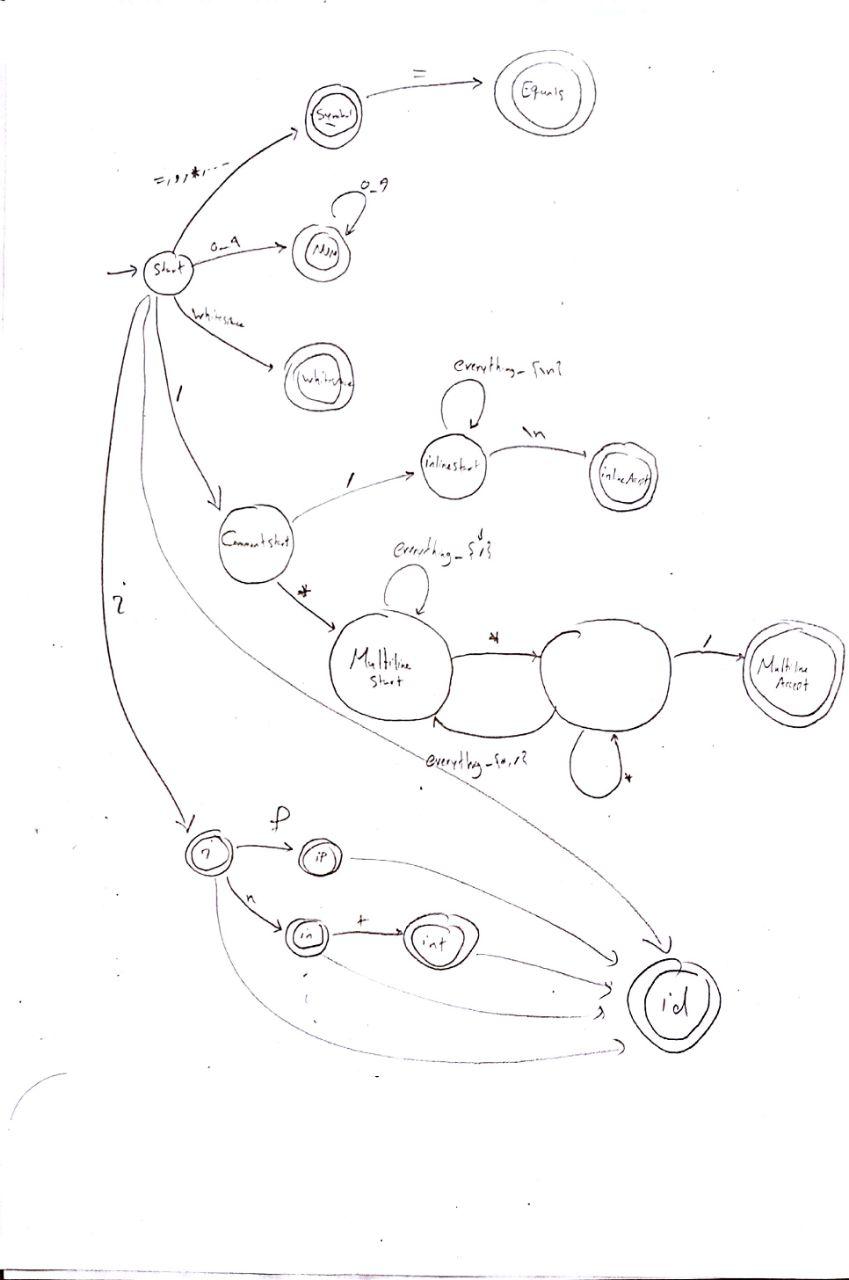 =
Symbol
Equals
=,,,*,...
0_9
0_9
NUM
Start
Whitespace
Whitespace
everything_{\n}
/
\n
inlinestart
inlineAccept
/
Commentstart
*
*
Multiline
Start
*
/
Multiline
Accept
*
i
P
i
iP
n
t
in
int
id